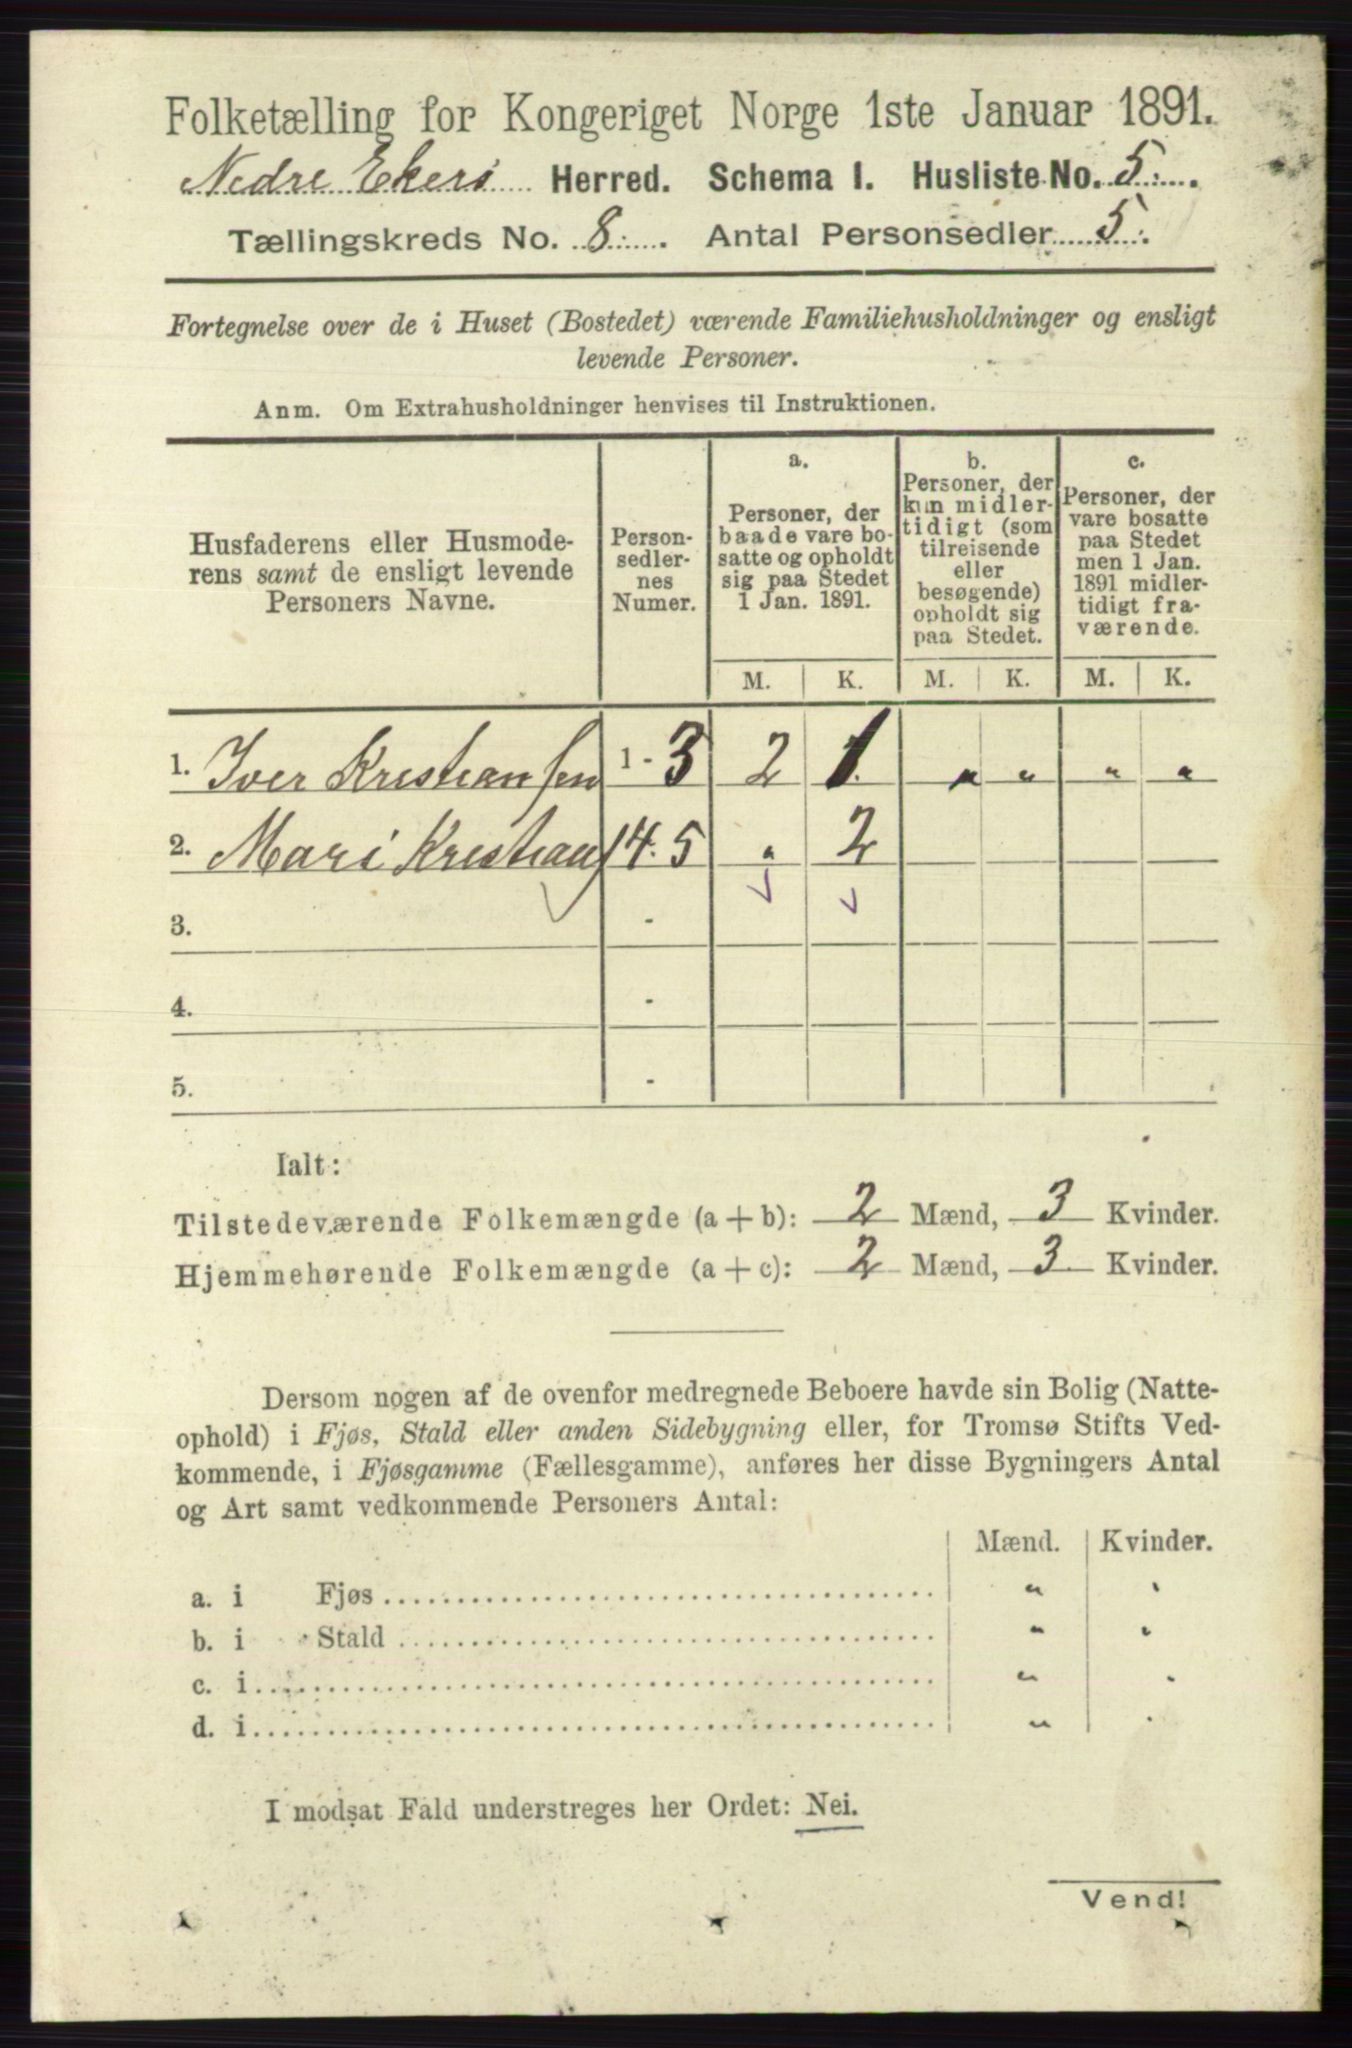 Folketælling for Kongeriget Norge 1ste Januar 1891.
Nedre Ekers Herred. Schema I. Husliste No. 5.
Tællingskreds No. 8. Antal Personsedler 5.
Fortegnelse over de i Huset (Bostedet) værende Familiehusholdninger og ensligt
levende Personer.
Anm. Om Extrahusholdninger henvises til Instruktionen.
Husfaderens eller Husmode-
rens samt de ensligt levende
Personers Navne.
Person-
sedler-
nes
Numer.
a.
Personer, der
baade vare bo-
satte og opholdt
sig paa Stedet
1 Jan. 1891.
b.
Personer, der
kun midler-
tidigt (som
tilreisende
eller
besøgende)
opholdt sig
paa Stedet.
c.
Personer, der
vare bosatte
paa Stedet
men 1 Jan.
1891 midler-
tidigt fra-
værende.
M. K. M. K. M. K.
1. Iver Kristiansen 1 - 3 2 1 " " " "
2. Mari Kristian 4. 5 " 2
3. -
4. -
5. -
Ialt:
Tilstedeværende Folkemængde (a + b): 2 Mænd, 3 Kvinder.
Hjemmehørende Folkemængde (a + c): 2 Mænd, 3 Kvinder.
Dersom nogen af de ovenfor medregnede Beboere havde sin Bolig (Natte-
ophold) i Fjøs, Stald eller anden Sidebygning eller, for Tromsø Stifts Ved-
kommende, i Fjøsgamme (Fællesgamme), anføres her disse Bygningers Antal
og Art samt vedkommende Personers Antal:
Mænd. Kvinder.
a. i Fjøs " "
b. i Stald " "
c. i " "
d. i " "
I modsat Fald understreges her Ordet: Nei.
Vend!